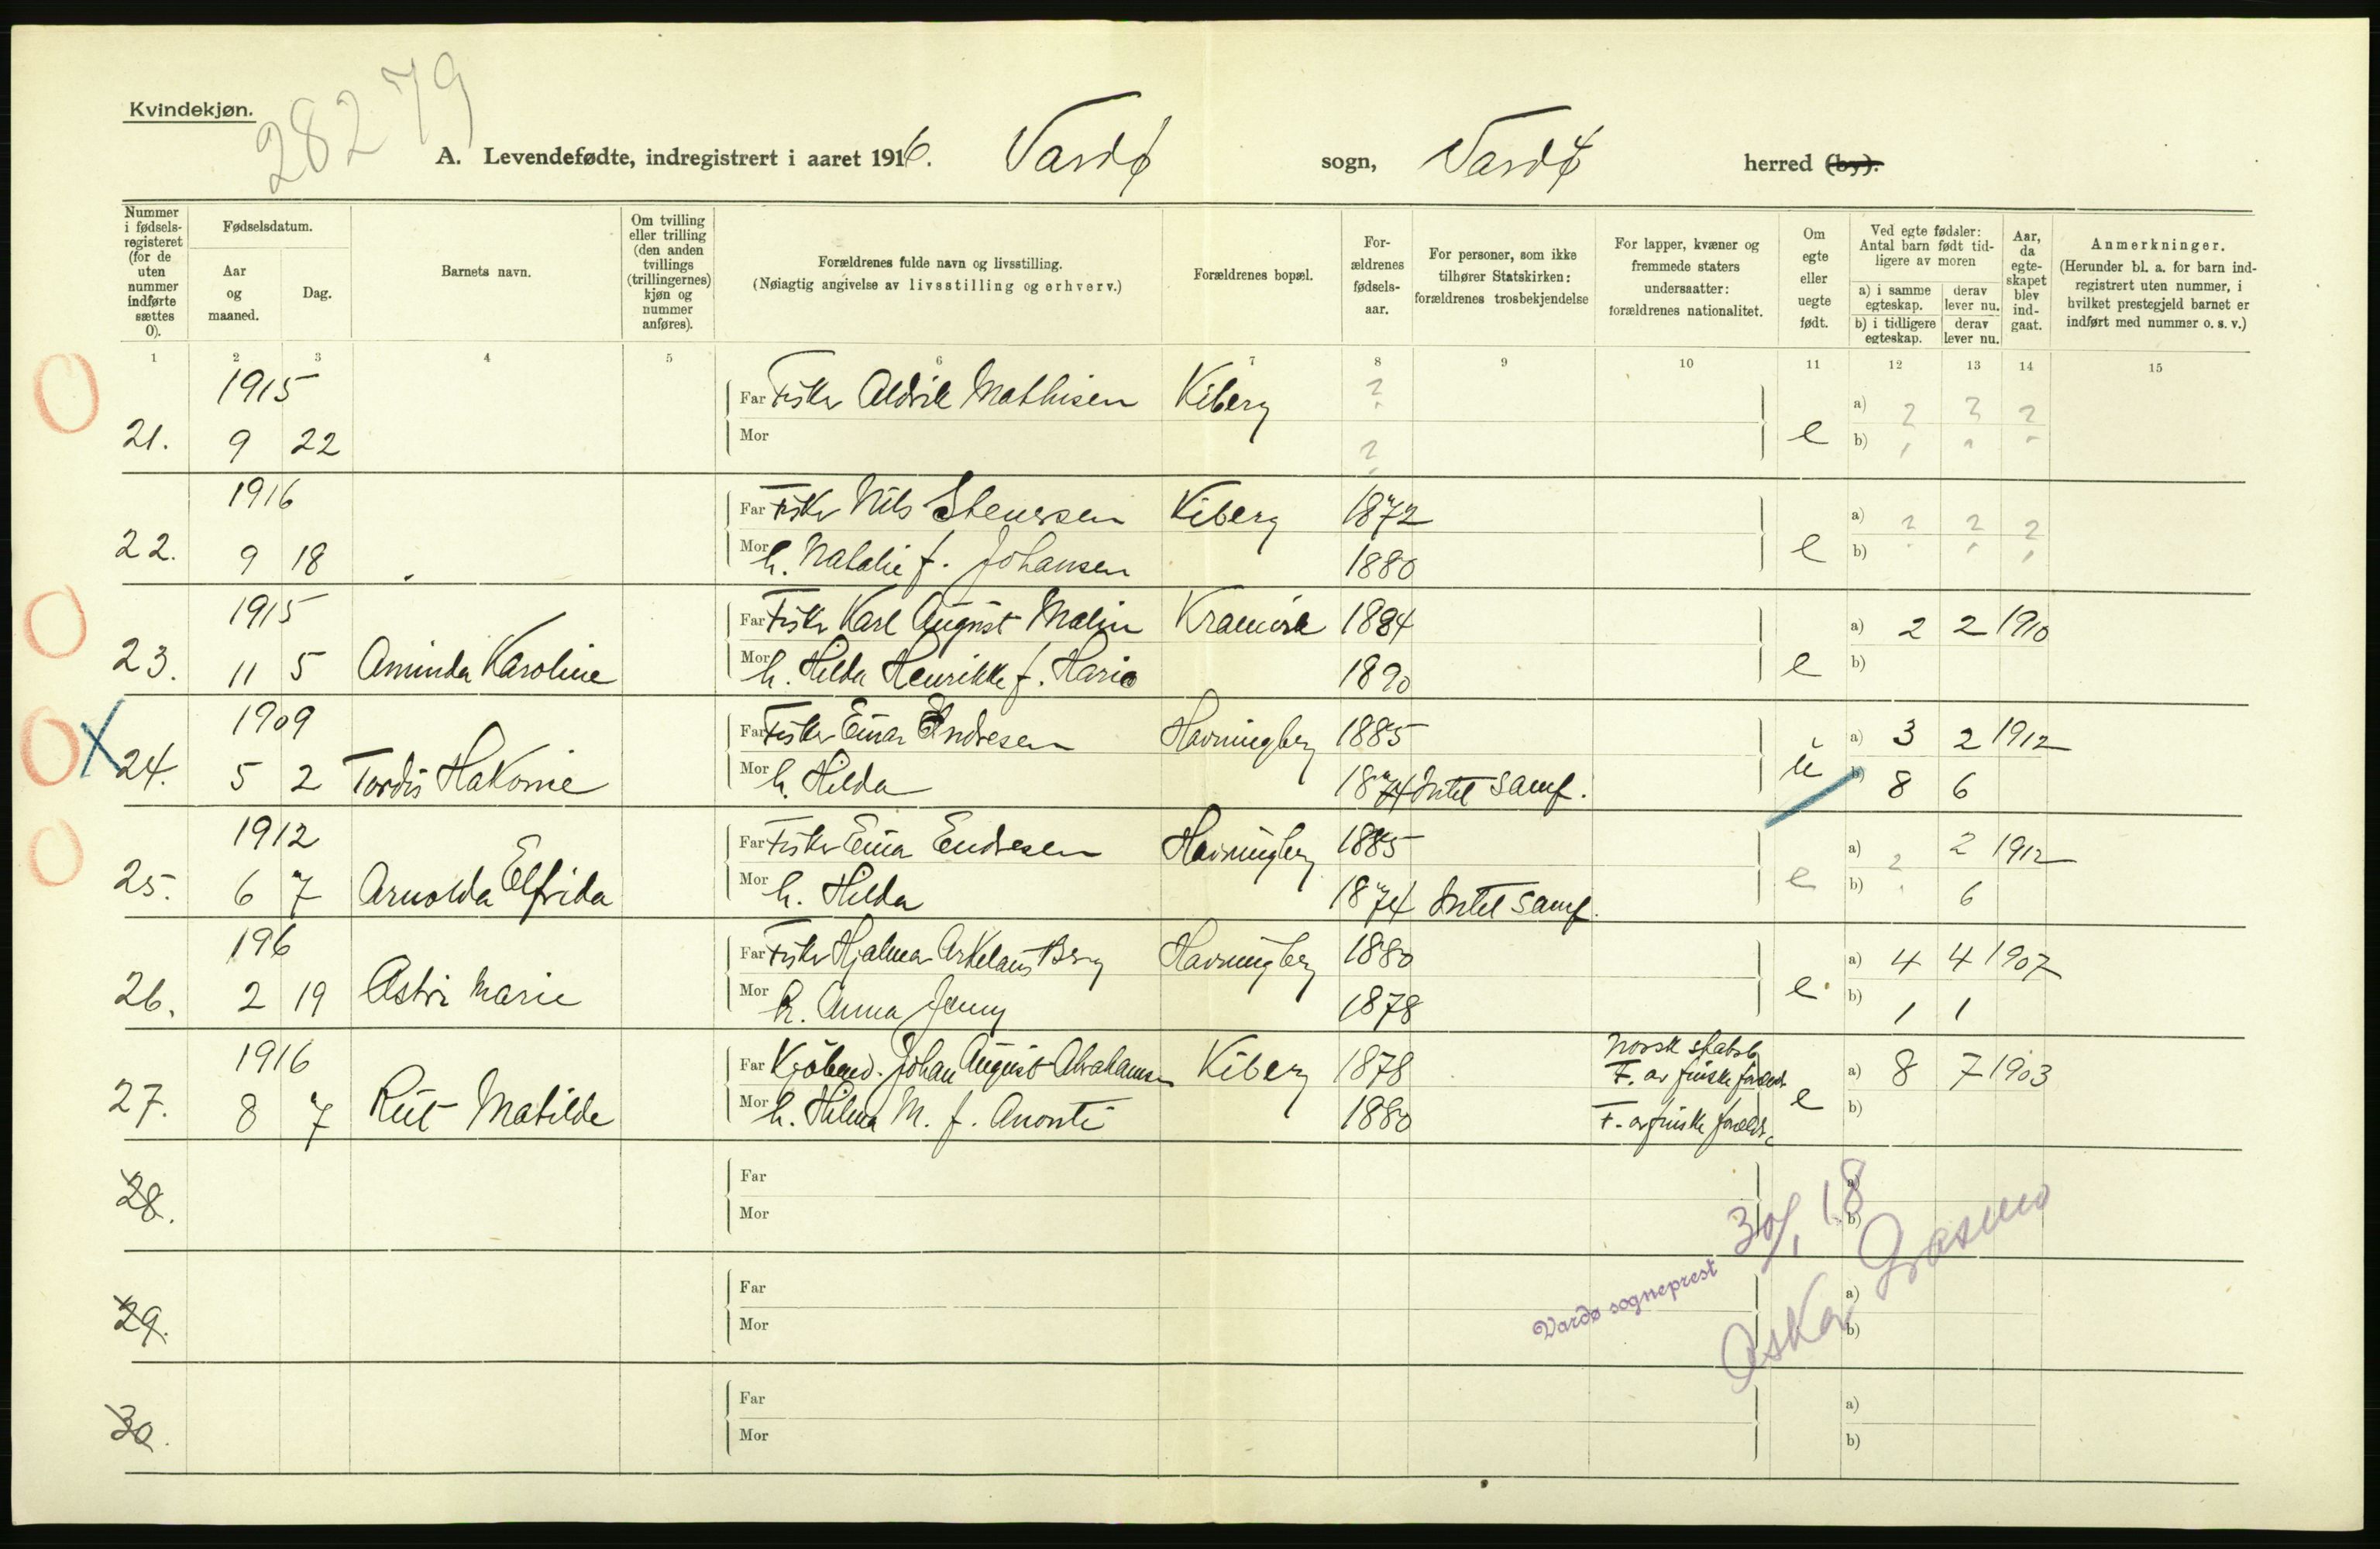 28279
Kvindekjøn.
A. Levendefødte, indregistrert i aaret 1916. Vardø sogn, Vardø herred (by).
Nummer i fødsels-registeret (for de uten nummer indførte sættes 0).
Fødselsdatum.
Aar og maaned.
Dag.
Barnets navn.
Om tvilling eller trilling (den anden tvillings (trillingernes) kjøn og nummer anføres).
Forældrenes fulde navn og livsstilling.
(Nøiagtig angivelse av livsstilling og erhverv.)
Forældrenes bopæl.
For-ældrenes fødsels-aar.
For personer, som ikke tilhører Statskirken: forældrenes trosbekjendelse
For lapper, kvæner og fremmede staters undersaatter: forældrenes nationalitet.
Om egte eller uegte født.
Ved egte fødsler: Antal barn født tid-ligere av moren
a) i samme egteskap.
derav lever nu.
b) i tidligere egteskap.
derav lever nu.
Aar, da egte-skapet blev ind-gaat.
Anmerkninger.
(Herunder bl. a. for barn ind-registrert uten nummer, i hvilket prestegjeld barnet er indført med nummer o. s. v.)
1 2 3 4 5 6 7 8 9 10 11 12 13 14 15
0
1915
Far Fisker Aldrik Mathisen Kiberg ?
a) ? ? ?
21. 9 22
Mor ? e b)
1916
Far Fisker Nils Steversen Kiberg 1872
a) ? ? ?
22. 9 18
Mor h. Natalie f. Johansen 1880 e b)
0
1915
Far Fisker Karl August Malin 1884
a) 2 2 1910
23. 11 5 Aminda Karoline
Mor h. Hilda Henrikke f. 1890 e b)
0 X
1909
Far Fisker Einar Endresen Havningberg 1885
a) 3 2 1912
24. 5 2 Tordis Hakonie
Mor h. Hilda 1874 Intet samf. u b) 8 6
0
1912
Far Fisker Einar Endresen Havningberg 1885
a) ? 2 1912
25. 6 7 Arnolda Elfrida
Mor h. Hilda 1874 Intet samf. e b) 6
196
Far Fisker Hjalmar Arkelaus Berg Havningberg 1880
a) 4 4 1907
26. 2 19 Astri Marie
Mor h. Anna Jenny 1878 e b) 1 1
1916
Far Johan August Abrahamsen Kiberg 1878 Norsk statsb. F. av finske forældre
a) 8 7 1903
27. 8 7 Rut Matilde
Mor h. Hilma M. f. Anonti 1880 F. av finske forældre e b)
28.
Far
a)
Mor
b)
30/1 18
29.
Far
a)
Mor
b)
Vardø sogneprest
Askar Grasmo
30.
Far
a)
Mor
b)